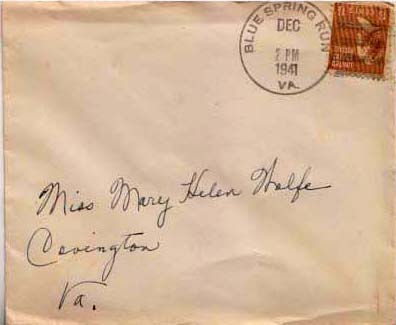 BLUE SPRING RUN
DEC
2 PM
1941
VA.
Miss Mary Helen Wolfe
Covington
Va.